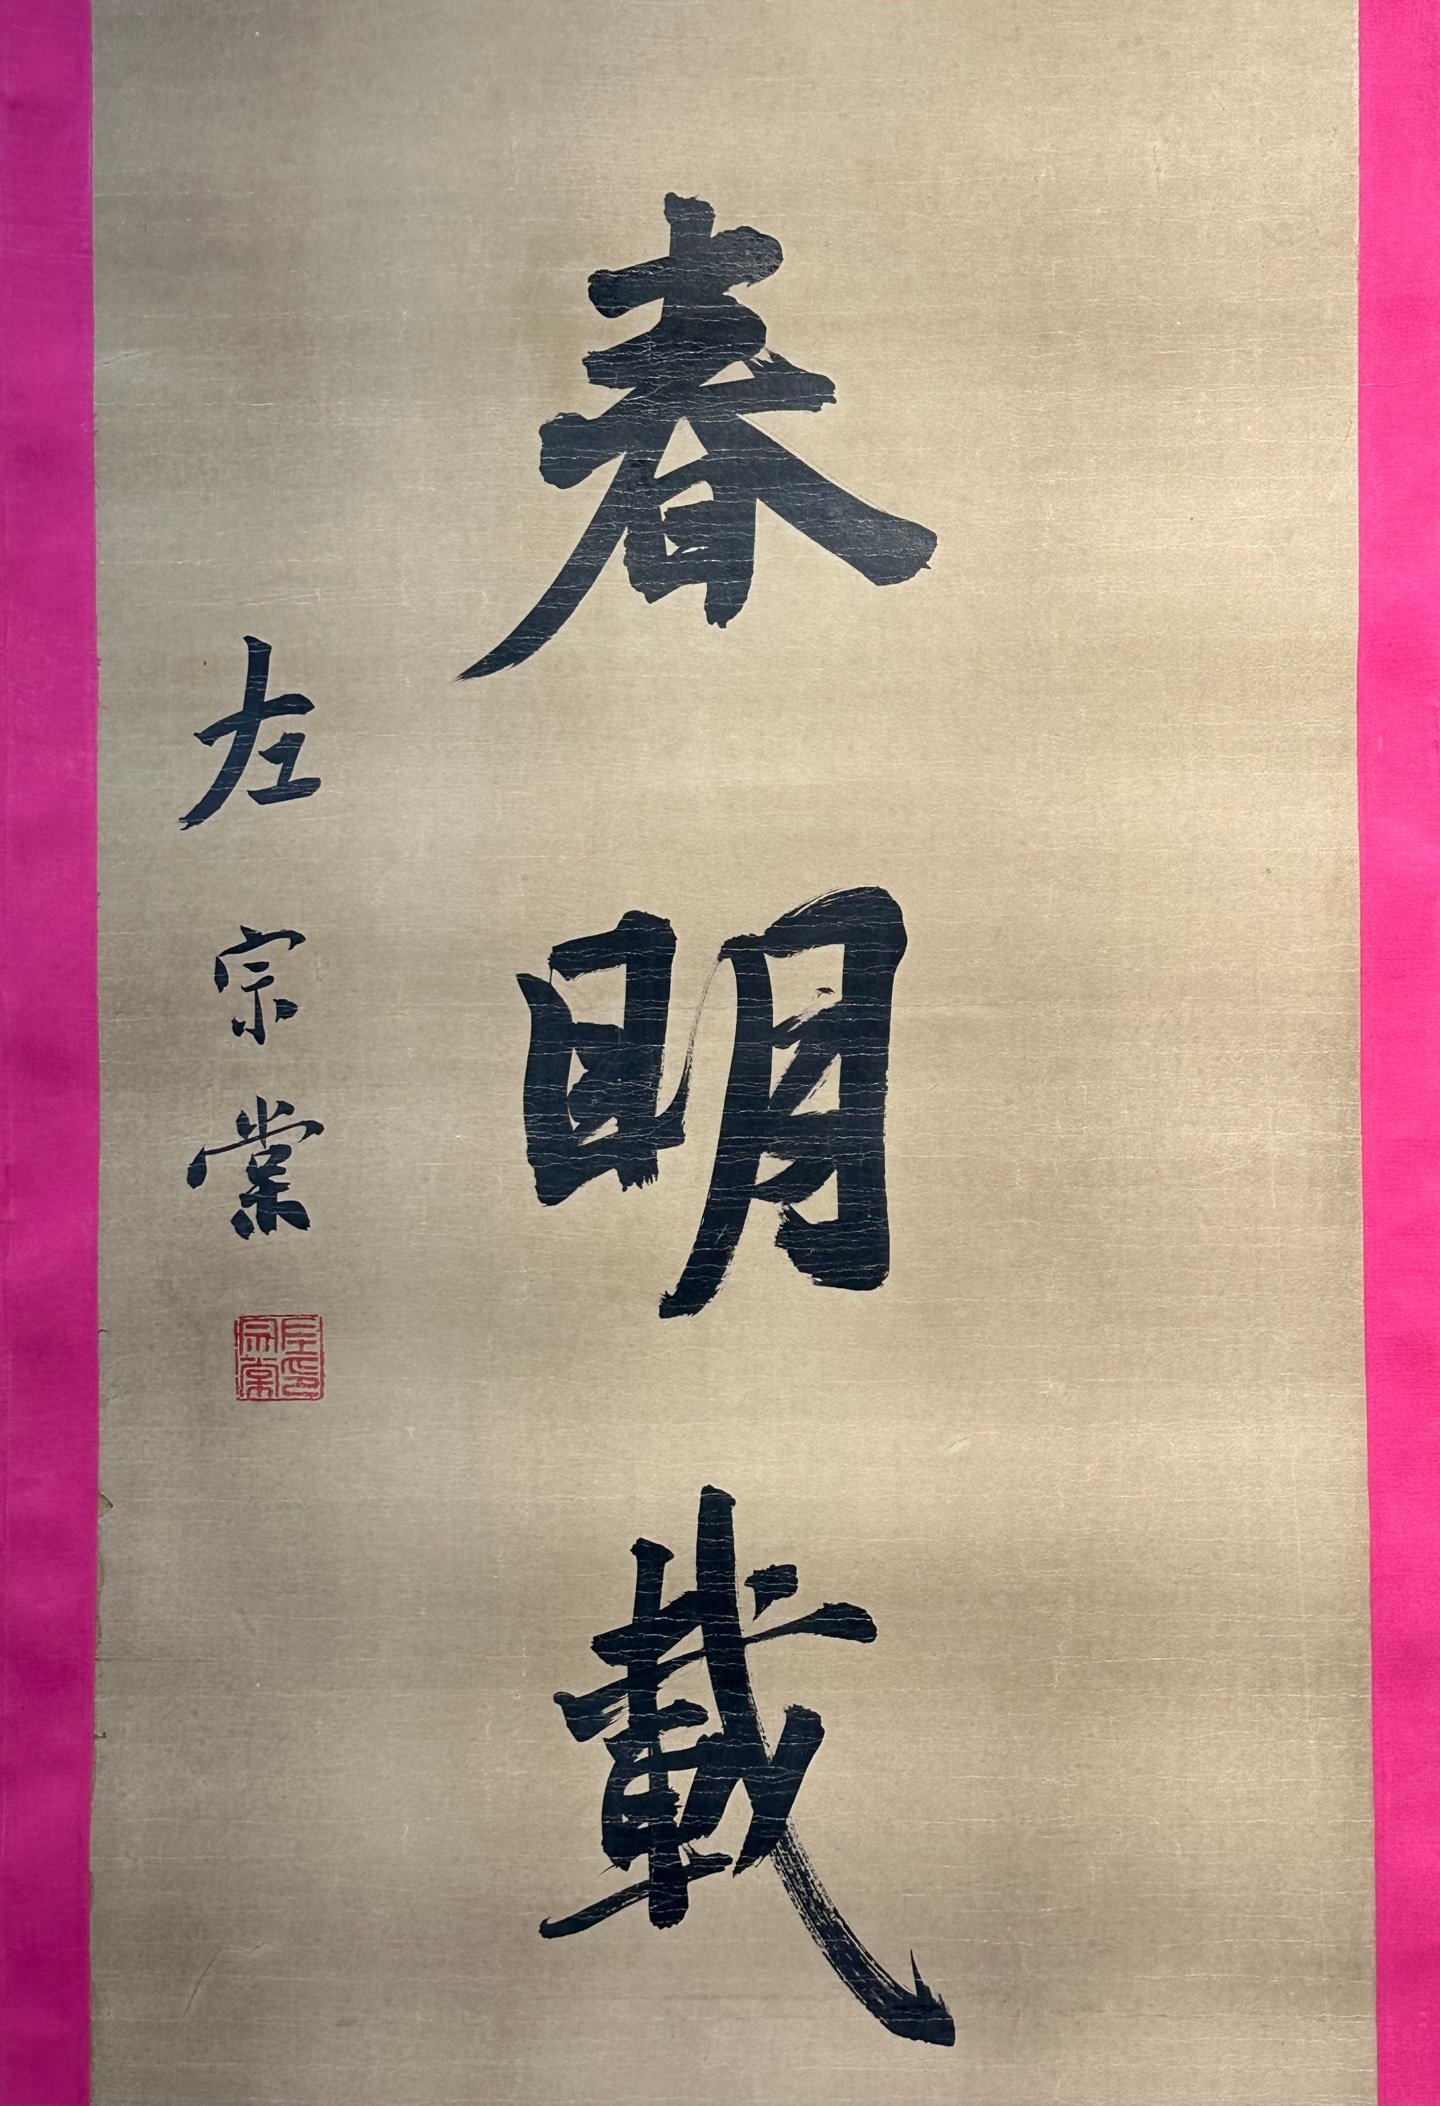 春明載
左宗棠
左宗棠印